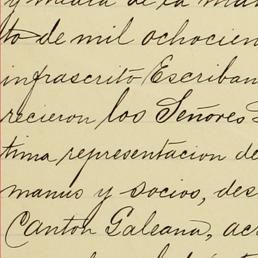 y media de la mañ
to de mil ochocien
infrascrito Escriban
recieron los Señores
tima representacion de
manus y socios, des
Canton Galeana, ac